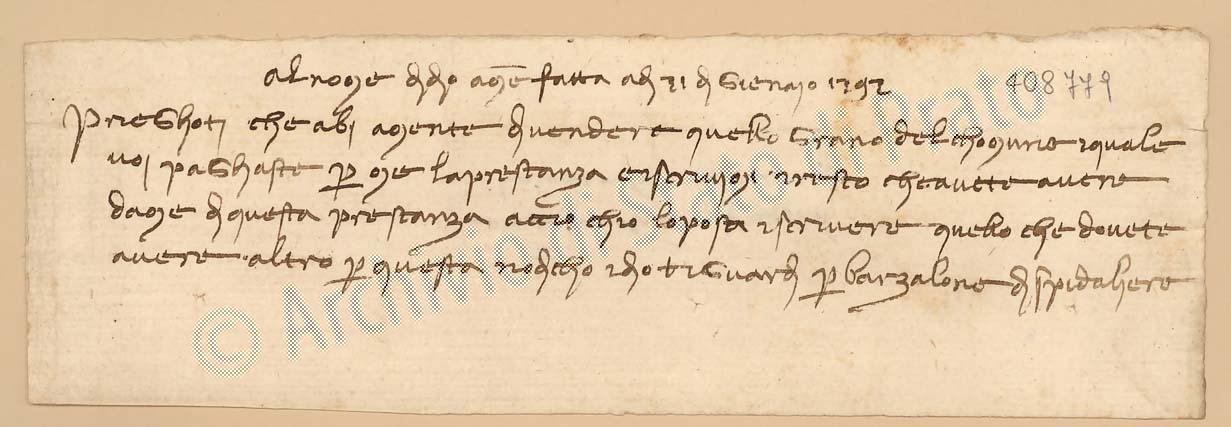 Al nome di dio amē fatta adi 21 di Gienaio 1392
408779
Prieghoti che abi a mente di vendere quello grano del chomune i quale
voi paghaste per me la prestanza e iscrivimi i resto che avete avere
da me di questa prestanza accio chio lo possa iscrivere quello che dovete
avere altro per questa no dicho idio ti guardi per barzalone di spidaliere
© Archivio di Stato di Prato